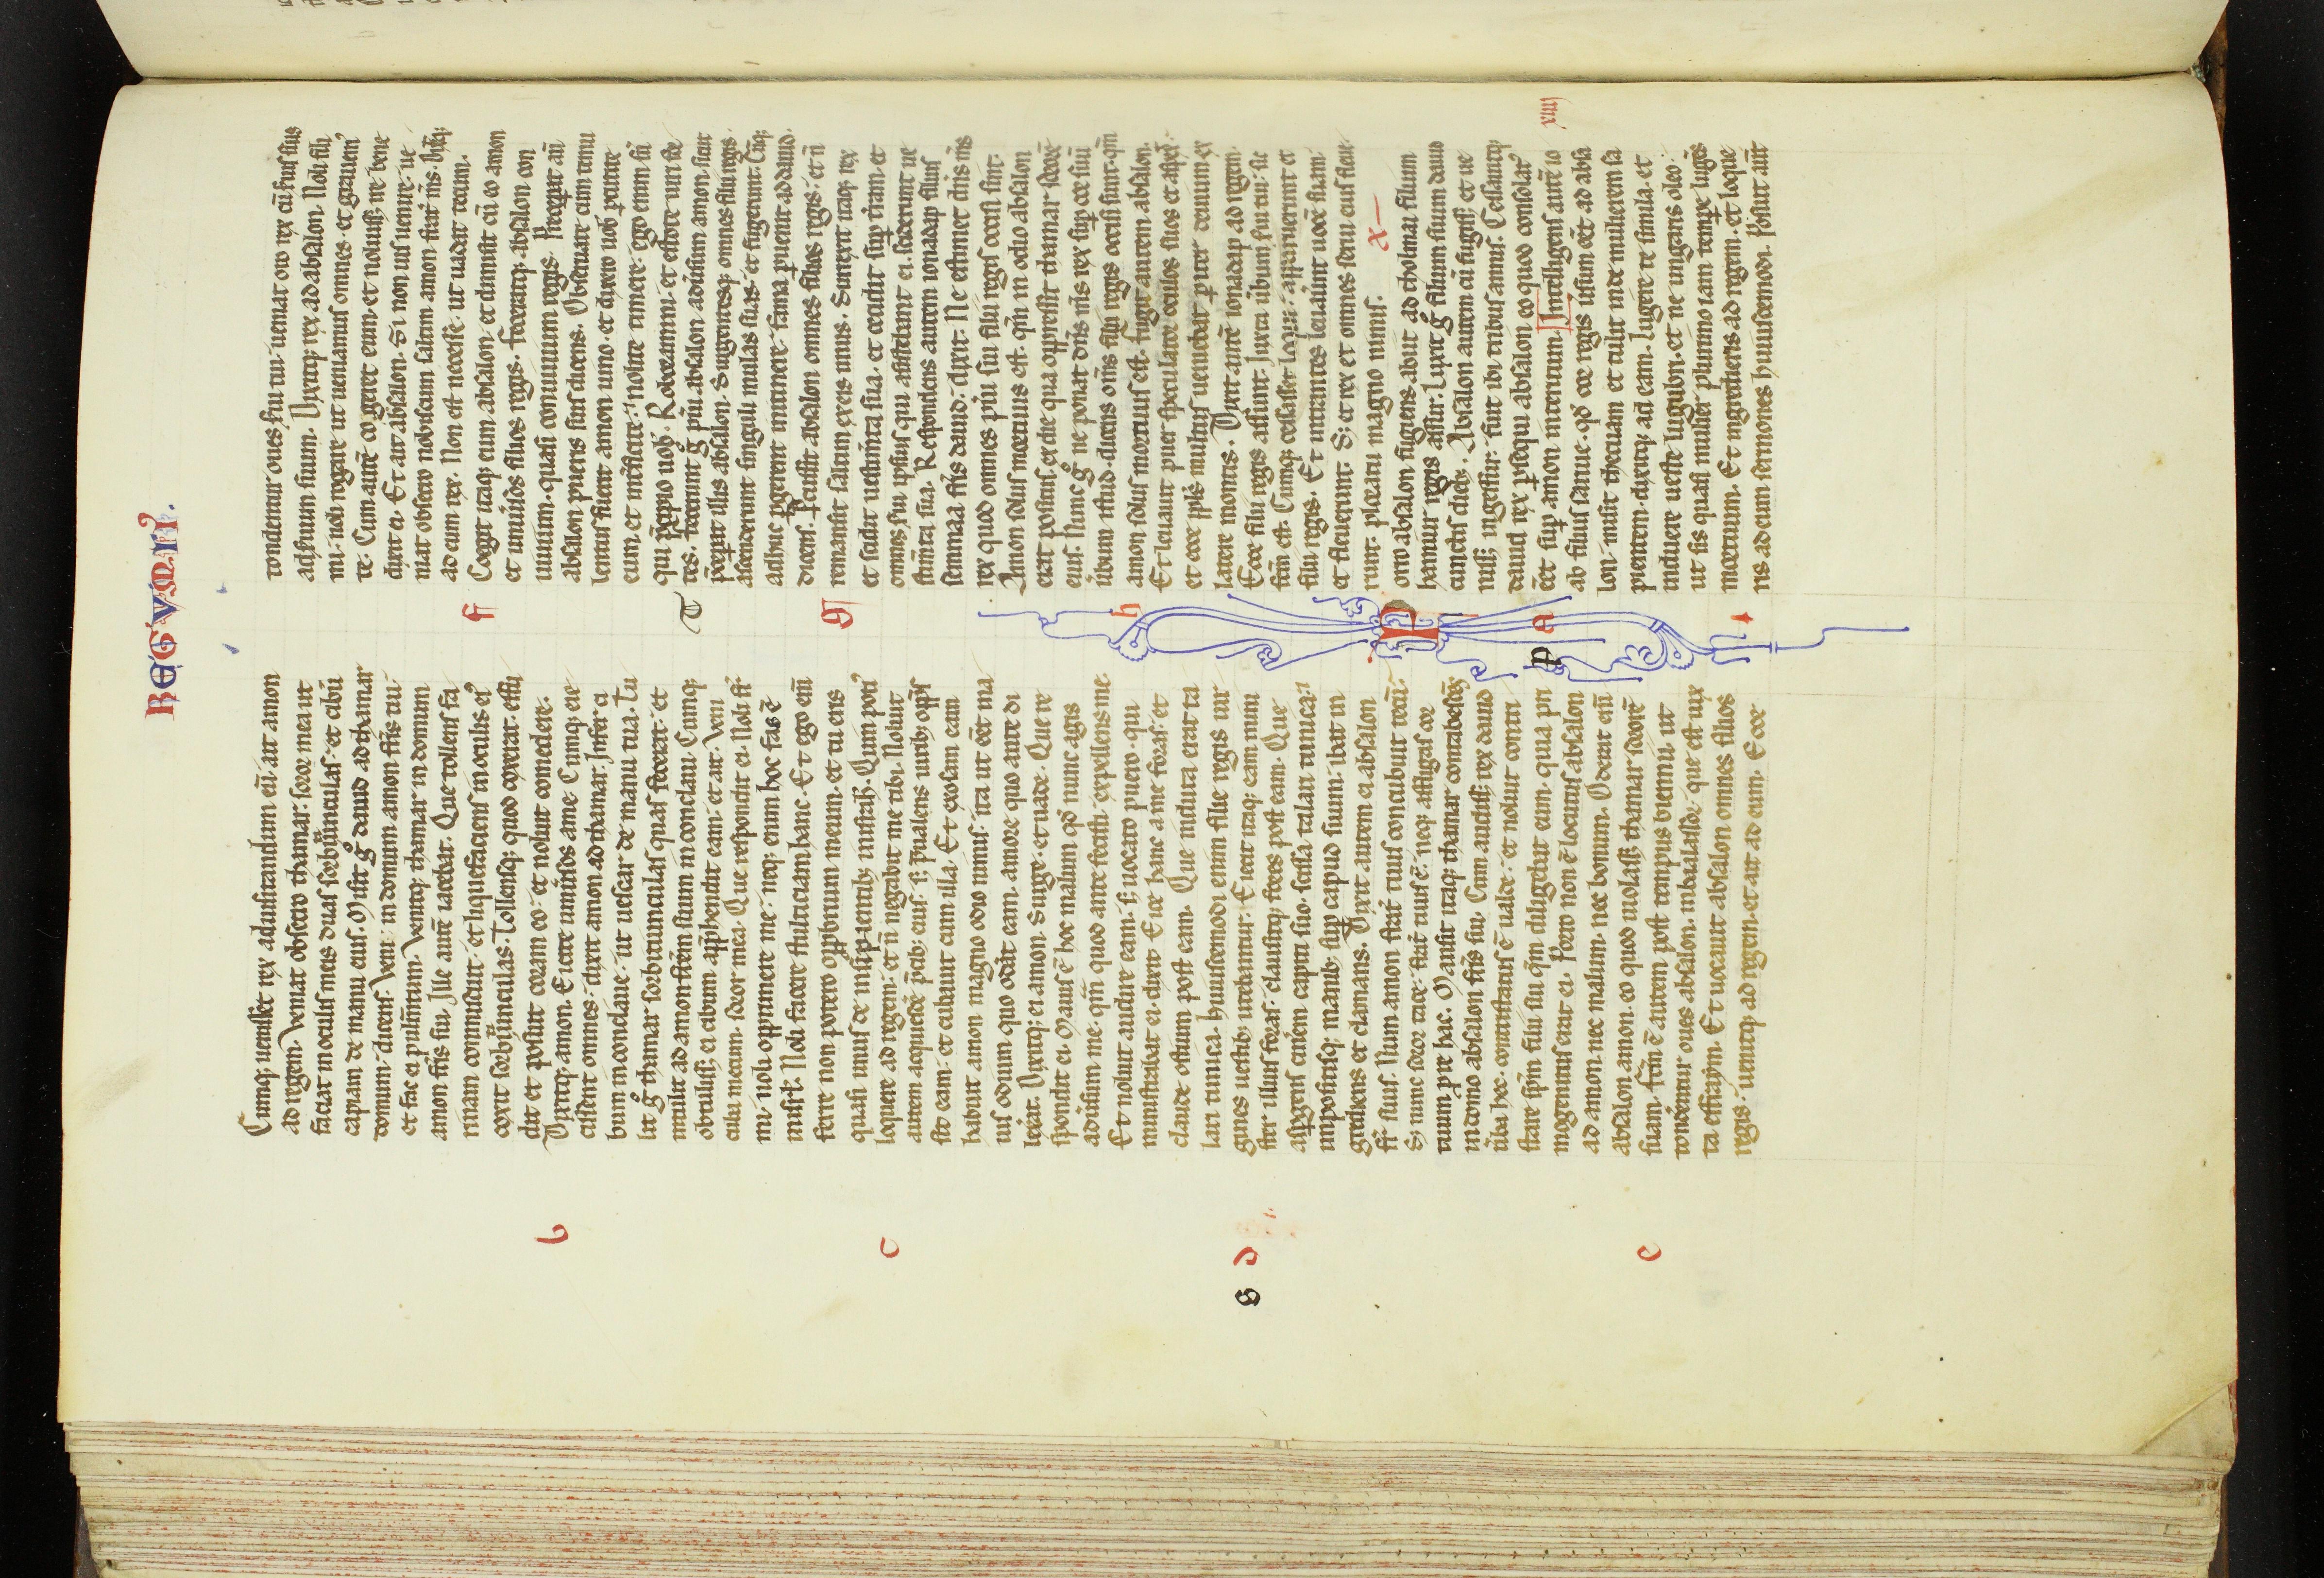 REGVM II.
Cumq; uenisset rex ad uisitandum eū ait amon
ad regem. Veniat obsecro thamar soror mea ut
faciat in oculis meis duas sorbitiunculas et cibū
capiam de manu eius. Misit g̊ dauid ad thamar
domum dicens. Veni in domum amon fr̄is tui
et fac ei pulm̄tum. Venitq; thamar in domum
amon fr̄is sui. Ille autē iacebat. Que tollens fa
rinam cōmiscuit et liquefaciens in oculis ei᾽
coxit sorbitiunculas. Tollensq; quod coxerat effu
dit et posuit coram eo et noluit comedere.
Dixitq; amon. Eicite uniūsos a me. Cumq; eie
cissent omnes dixit amon ad thamar. Infer ci
bum in conclaue ut uescar de manu tua. Tu
lit g̊ thamar sorbitiunculas quas fecerat et
intulit ad amon fr̄em suum in conclaui. Cumq;
obtulisset ei cibum app̄hendit eam et ait. Veni
cuba mecum soror mea. Que respondit ei. Noli fr̄
mi noli opprimere me neq; enim hoc fas ē
in isrl̄. Noli facere stulticiam hanc. Et ego em̄
ferre non potero opp̄brium meum et tu eris
quasi unus de insipientib; in isrl̄. Quin poti᾽
loquere ad regem et n̄ negabit me tibi. Noluit
autem acquiescē p̄cib; eius s; p̄ualens uirib; opp̄s
sit eam et cubauit cum illa. Et exosam eam
habuit amon magno odio nimis ita ut eēt ma
ius odium quo oderat eam amore quo ante di
lexerat. Dixitq; ei amon. Surge et uade. Que re
spondit ei. Maius ē hoc malum qd̄ nunc agis
aduersum me qm̄ quod ante fecisti expellens me.
Et noluit audire eam s; uocato puero qui
ministrabat ei dixit. Eice hanc a me foras et
claude ostium post eam. Que induta erat ta
lari tunica. Huiuscemodi enim filie regis uir
gines uestib; utebantur. Eiecit itaq; eam mini
ster illius foras clausitq; fores post eam. Que
aspgens cinerem capiti suo scissa talari tunica
impositisq; manib; sup capud suum ibat in
grediens et clamans. Dixit autem ei absalon
fr̄ suus. Num amon frat̄ tuus concubuit tecū.
S; nunc soror tace frat̄ tuus ē neq; affligas cor
tuum p re hac. Mansit itaq; thamar contabescēs
in domo absalon fr̄is sui. Cum audisset rex dauid
uerba hec contristatus ē ualde et noluit contri
stare sp̄m filii sui qm̄ diligebat eum quia pri
mogenitus erat ei. Porro non ē locutus absalon
ad amon nec malum nec bonum. Oderat enī
absalon amon eo quod uiolasset thamar sororē
suam. Fcm̄ ē autem post tempus biennii ut
tonderentur oues absalon in baalasor que est iux
ta effraym. Et uocauit absalon omnes filios
regis uenitq; ad regem et ait ad eum. Ecce
b
c
d
e
tondentur oues serui tui ueniat oro rex cū seruis suis
ad seruum suum. Dixitq; rex ad absalon. Noli fili
mi noli rogare ut ueniamus omnes et grauem᾽
te. Cum autē cogeret eum et noluisset ire bene
dixit ei. Et ait absalon. Si non uis uenire ue
niat obsecro nobiscum saltem amon frat̄ m̄s. Dixitq;
ad eum rex. Non est necesse ut uadat tecum.
Coegit itaq; eum absalon et dimisit cū eo amon
et uniūsos filios regis. Feceratq; absalon con
uiuium quasi conuiuium regis. Preceperat aū
absalon pueris suis dicens. Obseruate cum temu
lentus fuerit amon uino et dixero uob p̄cutite
eum et int̄ficite nolite timere ego enim sū
qui p̄cipio uob. Roboramini et estote uiri for
tes. Fecerunt g̊ pu̅i absalon aduersum amon sicut
p̄ceperat illis absalon. Surgentesq; omnes filii regis
ascenderunt singuli mulas suas et fugerunt. Cūq;
adhuc pgerent in itinere fama puenit ad dauid
dicens. Pcussit absalon omnes filios regis et n̄
remansit saltem ex eis unus. Surrexit itaq; rex
et scidit uestim̄ta sua et cecidit sup t̄ram et
omnes serui ipsius qui assistebant ei sciderunt ue
stim̄ta sua. Respondens autem ionadap filius
semmaa fr̄is dauid dixit. Ne estimet dn̄s m̄s
rex quod omnes pu̅i filii regis occisi sint.
Amon solus mortuus est qm̄ in odio absalon
erat positus ex die qua oppressit thamar sororē
eius. Nunc g̊ ne ponat dn̄s m̄s rex sup cor suū
ūbum istud dicens om̄s filii regis occisi sunt qm̄
amon solus mortuus est. Fugit autem absalon.
Et leuauit puer speculator oculos suos et aspexit
et ecce ppl̄s multus ueniebat p iter deuium ex
latere montis. Dixit autē ionadap ad regem.
Ecce filii regis assunt. Juxta ūbum serui tui sic
fcm̄ est. Cumq; cessasset loqui apparuerunt et
filii regis. Et intrantes leuauerunt uocē suam
et fleuerunt. S; et rex et omnes serui eius fleue
runt ploratu magno nimis.
Porro absalon fugiens abiit ad tholmai filium
hamiur regis gessur. Luxit g̊ filium suum dauid
cunctis dieb;. Absalon autem cū fugisset et ue
nisset in gessur fuit ibi tribus annis. Cessauitq;
dauid rex psequi absalon eo quod consolat᾽
eēt sup amon interitum. Intelligens autē io
ab filius saruie qd̄ cor regis uersum eēt ad absa
lon misit thecuam et tulit inde mulierem sa
pientem dixitq; ad eam. Lugere te simula et
induere ueste lugubri et ne ungaris oleo
ut sis quasi mulier plurimo iam tempe lugēs
mortuum. Et ingredieris ad regem et loque
ris ad eum sermones huiuscemodi. Posuit aūt
f
g
h
a
xiiij